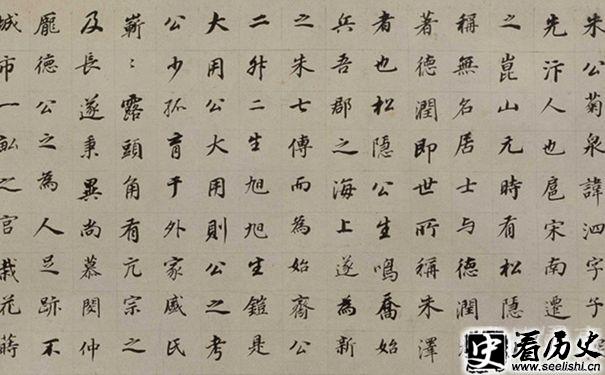 朱公菊泉諱泗字子
先汴人也扈宋南遷
之崑山元時有松隱
稱無名居士与德潤
著德潤即世所稱朱澤
者也松隱公生鳴喬始
兵吾郡之海上遂為新
之朱七傳而為始齋公
二外二生旭旭生鎧是
大用公大用則公之考
公少孤育于外家盛氏
嶄〻露頭角有亢宗之
及長遂秉異尚慕閔仲
龐德公之為人足跡不
城市一畝之宮栽花蒔
史 看历史
www.seelishi.cn